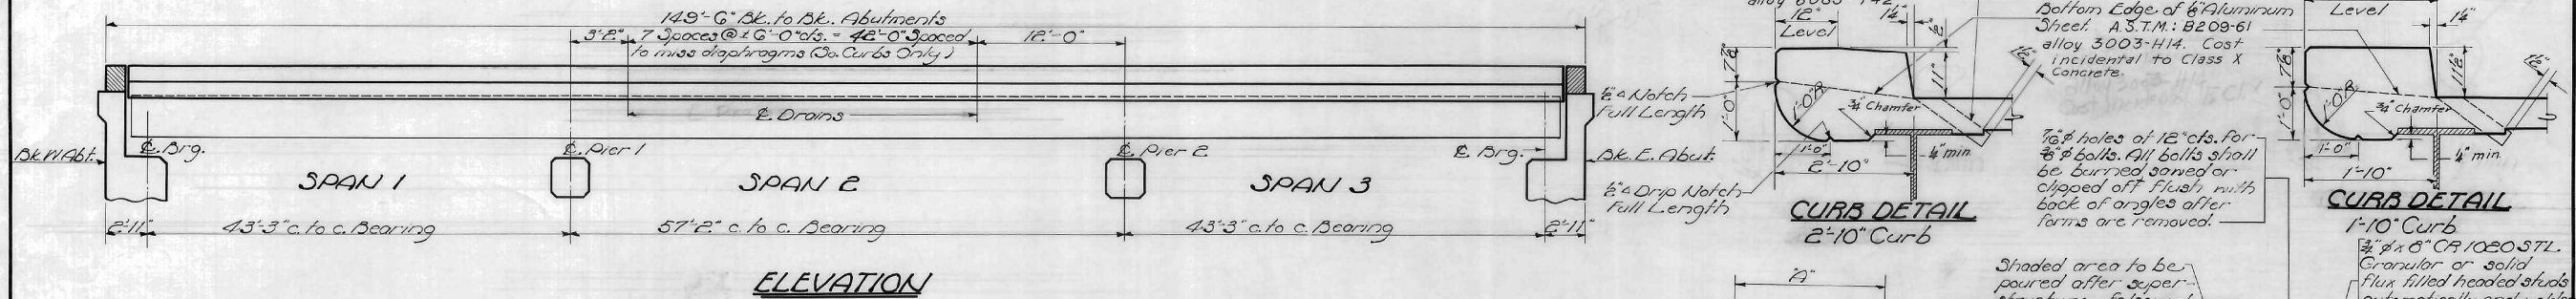 149'-6" Bk. to Bk. Abutments
3'-2" 7 Spaces @ ± 6'-0" cts. = 42'-0" Spaced 12'-0"
to miss diaphragms (So. Curbs Only)
℄ Drains
Bk. W. Abt.
℄ Brg.
℄ Pier 1
℄ Pier 2
℄ Brg.
Bk. E. Abut.
SPAN 1
SPAN 2
SPAN 3
2'-11"
43'-3" c. to c. Bearing
57'-2" c. to c. Bearing
43'-3" c. to c. Bearing
2'-11"
ELEVATION
12"
Level
1¼"
½"
7⅞"
11"
1½"
1'-0"
1'-0"R.
¾" Chamfer
½" △ Notch
Full Length
1'-0"
2'-10"
¼" min.
½" △ Drip Notch
Full Length
CURB DETAIL
2'-10" Curb
"A"
Bottom Edge of ⅛" Aluminum
Sheet. A.S.T.M.: B209-61
alloy 3003-H14. Cost
incidental to Class X
Concrete.
7/16" ∅ holes at 12" cts. for
⅜" ∅ bolts. All bolts shall
be burned sawed or
clipped off flush with
back of angles after
forms are removed.
Shaded area to be
poured after super-
Level
1¼"
7⅞"
11½"
1½"
1'-0"
1'-0"R.
¾" Chamfer
1'-0"
1'-10"
¼" min.
CURB DETAIL
1'-10" Curb
¾" ∅ x 8" CR 1020 STL.
Granular or solid
flux filled headed studs